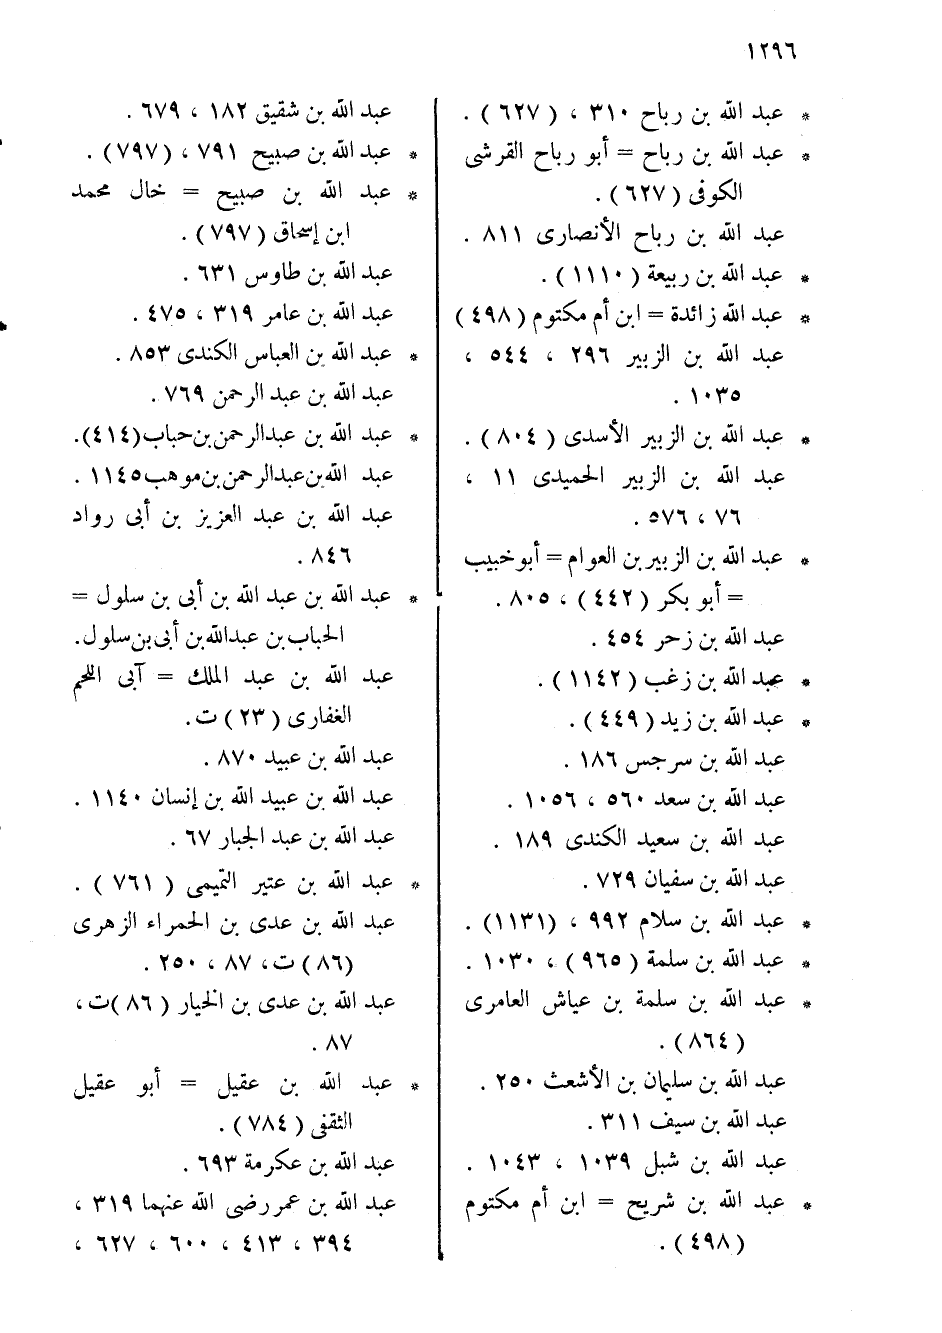 ١٢٩٦
* عبد الله بن رباح ٣١٠ ، (٦٢٧) .
* عبد الله بن رباح = أبو رباح القرشى
الكوفى (٦٢٧) .
عبد الله بن رباح الأنصارى ٨١١ .
* عبد الله بن ربيعة (١١١٠) .
* عبد الله زائدة = ابن أم مكتوم (٤٩٨)
عبد الله بن الزبير ٢٩٦ ، ٥٤٤ ،
١٠٣٥ .
* عبد الله بن الزبير الأسدى (٨٠٤) .
عبد الله بن الزبير الحميدى ١١ ،
٧٦ ، ٥٧٦ .
* عبد الله بن الزبير بن العوام = أبو خبيب
= أبو بكر (٤٤٢) ، ٨٠٥ .
عبد الله بن زحر ٤٥٤ .
* عبد الله بن زغب (١١٤٢) .
* عبد الله بن زيد (٤٤٩) .
عبد الله بن سرجس ١٨٦ .
عبد الله بن سعد ٥٦٠ ، ١٠٥٦ .
عبد الله بن سعيد الكندى ١٨٩ .
عبد الله بن سفيان ٧٢٩ .
* عبد الله بن سلام ٩٩٢ ، (١١٣١) .
* عبد الله بن سلمة (٩٦٥) ، ١٠٣٠ .
* عبد الله بن سلمة بن عياش العامرى
(٨٦٤) .
عبد الله بن سليمان بن الأشعث ٢٥٠ .
عبد الله بن سيف ٣١١ .
عبد الله بن شبل ١٠٣٩ ، ١٠٤٣ .
* عبد الله بن شريح = ابن أم مكتوم
(٤٩٨) .
عبد الله بن شقيق ١٨٢ ، ٦٧٩ .
* عبد الله بن صبيح ٧٩١ ، (٧٩٧) .
* عبد الله بن صبيح = خال محمد
ابن إسحاق (٧٩٧) .
عبد الله بن طاوس ٦٣١ .
عبد الله بن عامر ٣١٩ ، ٤٧٥ .
* عبد الله بن العباس الكندى ٨٥٣ .
عبد الله بن عبد الرحمن ٧٦٩ .
* عبد الله بن عبدالرحمن بن حباب (٤١٤).
عبد الله بن عبدالرحمن بن موهب ١١٤٥ .
عبد الله بن عبد العزيز بن أبى رواد
٨٤٦ .
* عبد الله بن عبد الله بن أبى بن سلول =
الحباب بن عبدالله بن أبى بن سلول.
عبد الله بن عبد الملك = آبى اللحم
الغفارى (٢٣) ت.
عبد الله بن عبيد ٨٧٠ .
عبد الله بن عبيد الله بن إنسان ١١٤٠ .
عبد الله بن عبد الجبار ٦٧ .
* عبد الله بن عتير التميمى (٧٦١) .
عبد الله بن عدى بن الحمراء الزهرى
(٨٦) ت، ٨٧ ، ٢٥٠ .
عبد الله بن عدى بن الخيار (٨٦) ت ،
٨٧ .
* عبد الله بن عقيل = أبو عقيل
الثقفى (٧٨٤) .
عبد الله بن عكرمة ٦٩٣ .
عبد الله بن عمر رضى الله عنهما ٣١٩ ،
٣٩٤ ، ٤١٣ ، ٦٠٠ ، ٦٢٧ ،